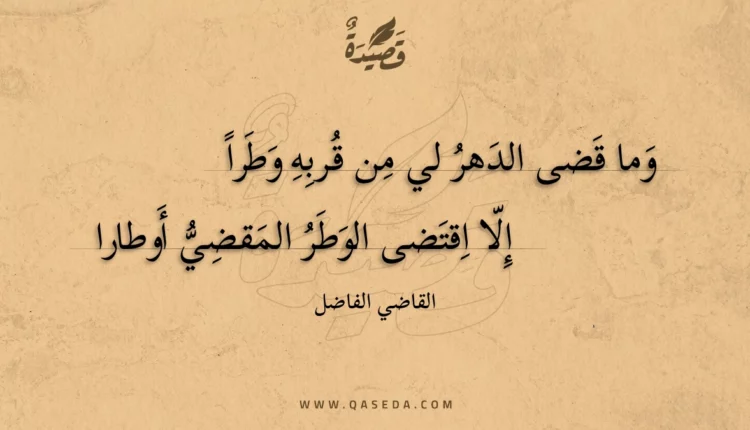 قَصِيدَةٌ
وَما قَضى الدَهرُ لي مِن قُربِهِ وَطَراً
إِلّا اِقتَضى الوَطَرُ المَقضِيُّ أَوطارا
القاضي الفاضل
WWW.QASEDA.COM